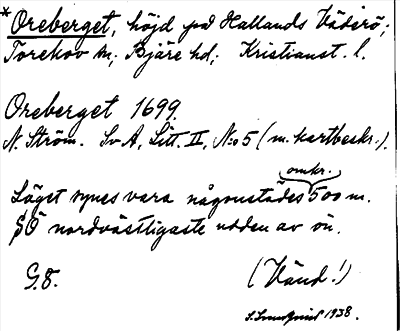 *Oreberget, höjd på Hallands Väderö;
Torekov sn; Bjäre hd; Kristianst. l.
Oreberget 1699.
N. Ström. SvA, Litt. II, N:o 5 (m. kartbeskr.).
omkr.
Läget synes vara någonstädes 500 m.
SO nordvästligaste udden av ön.
G.8.
(Vänd!)
1938.